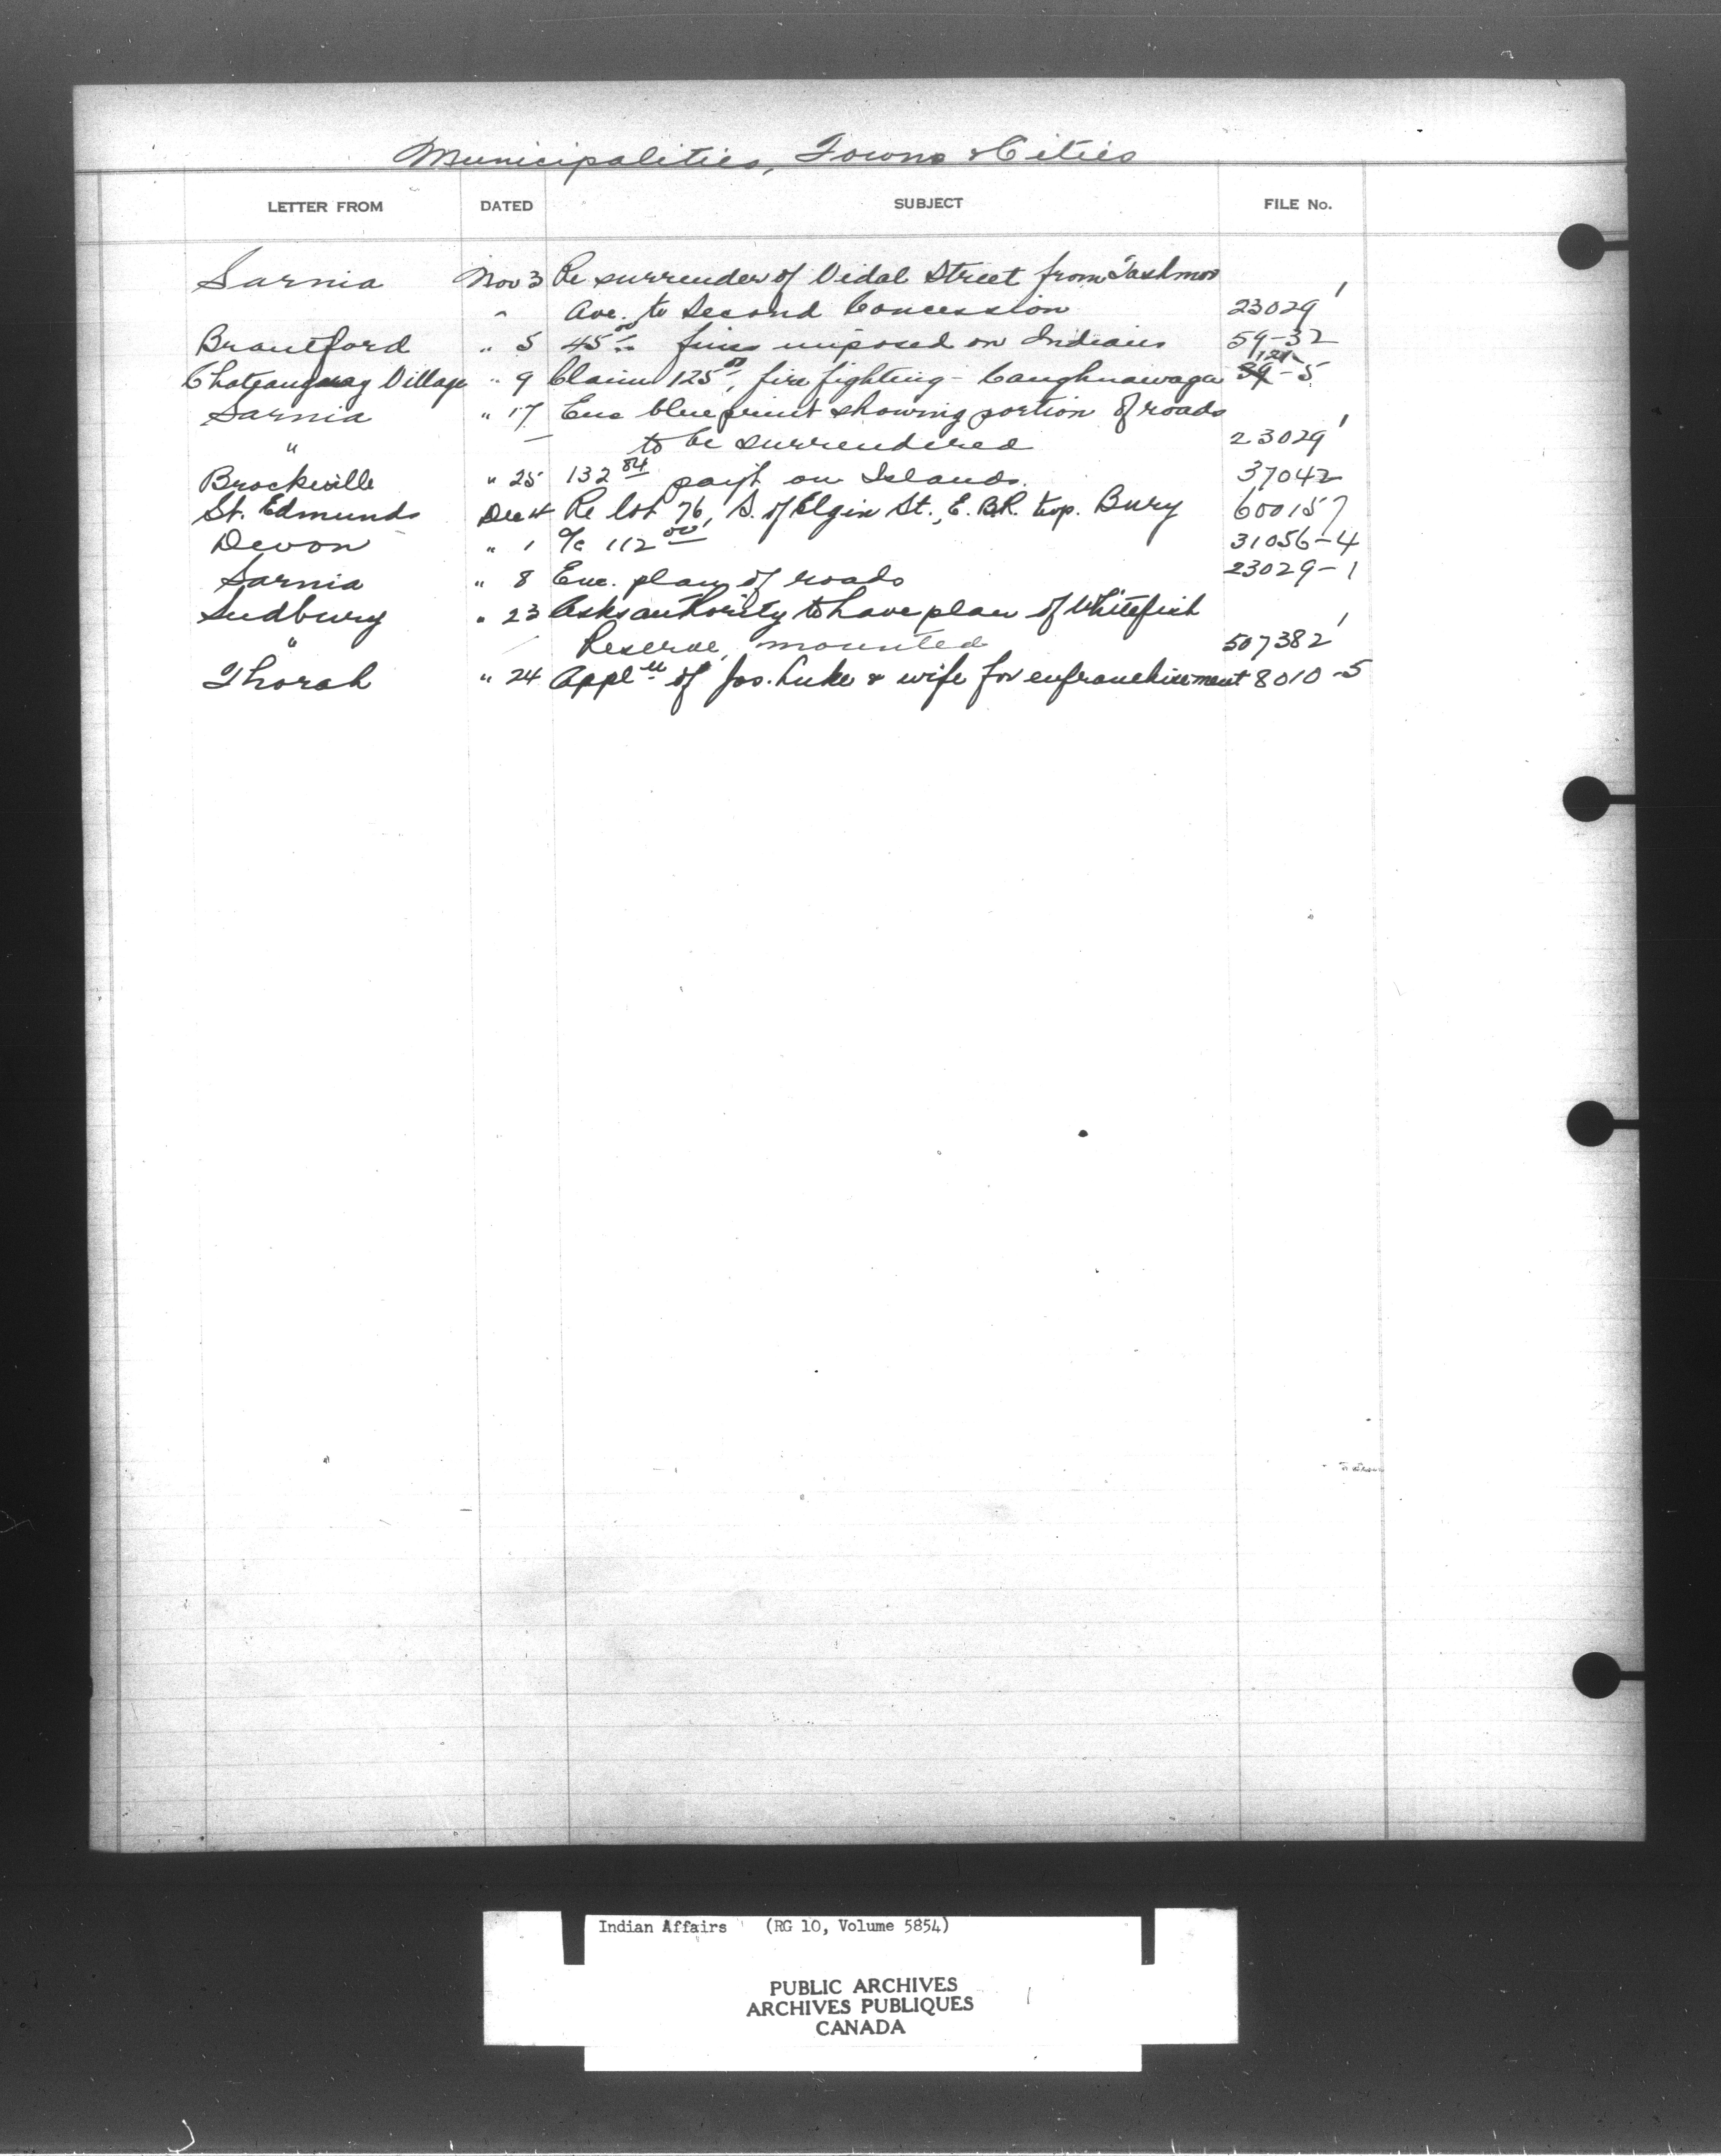 Municipalities, Towns & Cities
LETTER FROM DATED SUBJECT FILE No.
Sarnia Nov 3 Re surrender of Vidal Street from Tashmoo
" Ave. to Second Concession 23029 1
Brantford " 5 45.00 fines imposed on Indians 59-32
Chateauguay Village " 9 Claim 125.00, fire fighting - Caughnawaga 121-5
Sarnia " 17 Enc blueprint showing portion of roads
" to be surrendered 23029 1
Brockville " 25 132.84 payt on Islands. 37042
St. Edmunds Dec 4 Re lot 76, S. of Elgin St., E. B.R. Twp. Bury 600157
Devon " 1 a/c 112.00 31056-4
Sarnia " 8 Enc. plan of roads 23029-1
Sudbury " 23 Asks authority to have plan of Whitefish
" Reserve, mounted 507382 1
Thorah " 24 Appl of Jos. Luke & wife for enfranchisement 8010-5
Indian Affairs (RG 10, Volume 5854)
PUBLIC ARCHIVES
ARCHIVES PUBLIQUES
CANADA